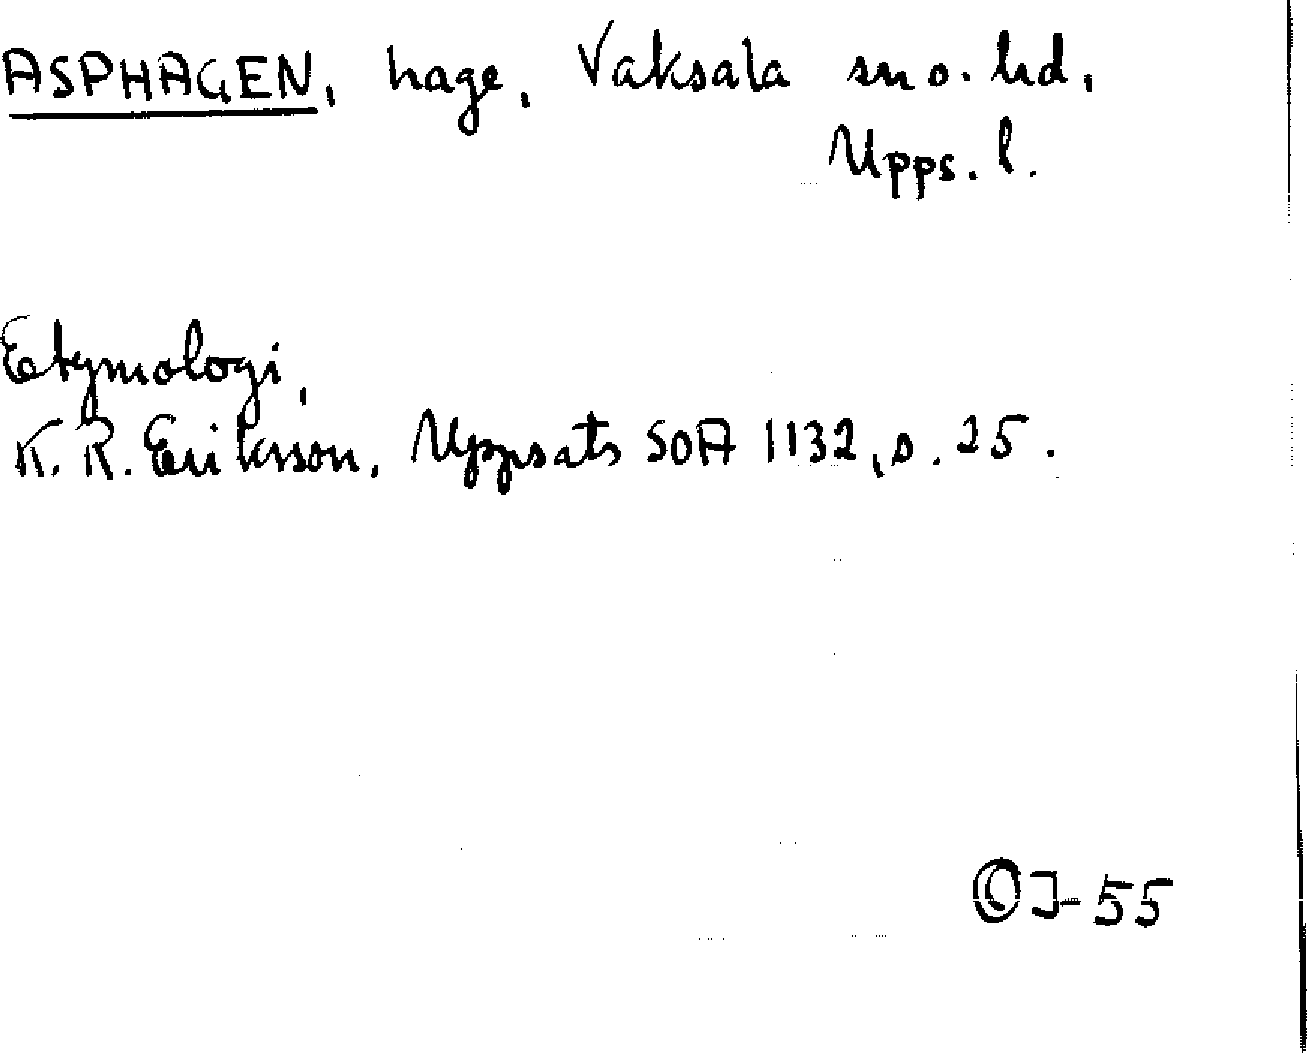 ASPHAGEN, hage, Vaksala sn o. hd,
Upps. l.
Etymologi,
K. R. Eriksson, Uppsats SOA 1132, s. 25.
©J-55